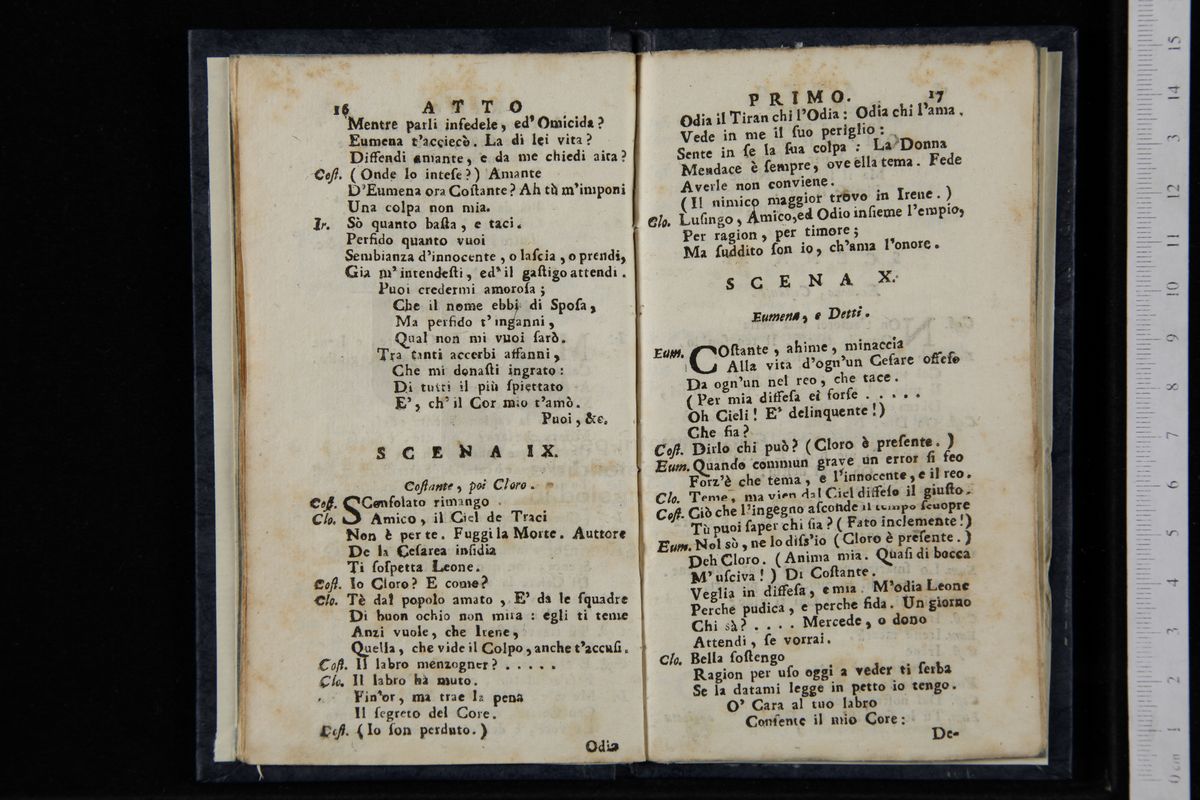 16 ATTO
Mentre parli infedele, ed' Omicida?
Eumena t'acciecò. La di lei vita?
Diffendi amante, e da me chiedi aita?
Coſt. (Onde lo inteſe?) Amante
D'Eumena ora Coſtante? Ah tù m'imponi
Una colpa non mia.
Ir. Sò quanto baſta, e taci.
Perfido quanto vuoi
Sembianza d'innocente, o laſcia, o prendi,
Gia m'intendeſti, ed'il gaſtigo attendi.
Puoi credermi amoroſa;
Che il nome ebbi di Spoſa,
Ma perfido t'inganni,
Qual non mi vuoi farò.
Tra tanti accerbi affanni,
Che mi donaſti ingrato:
Di tutti il più ſpiettato
E', ch'il Cor mio t'amò.
Puoi, &c.
SCENA IX.
Coſtante, poi Cloro.
Coſt. SConſolato rimango.
Clo. Amico, il Ciel de Traci
Non è per te. Fuggi la Morte. Auttore
De la Ceſarea inſidia
Ti ſoſpetta Leone.
Coſt. Io Cloro? E come?
Clo. Tè dal popolo amato, E' da le ſquadre
Di buon ochio non mira: egli ti teme
Anzi vuole, che Irene,
Quella, che vide il Colpo, anche t'accuſi.
Coſt. Il labro menzogner? . . . . .
Clo. Il labro hà muto.
Fin'or, ma trae la pena
Il ſegreto del Core.
Coſt. (Io ſon perduto.)
Odia
PRIMO. 17
Odia il Tiran chi l'Odia: Odia chi l'ama.
Vede in me il ſuo periglio:
Sente in ſe la ſua colpa: La Donna
Mendace è ſempre, ove ella tema. Fede
Averle non conviene.
(Il nimico maggior trovo in Irene.)
Clo. Luſingo, Amico, ed Odio inſieme l'empio,
Per ragion, per timore;
Ma ſuddito ſon io, ch'ama l'onore.
SCENA X.
Eumena, e Detti.
Eum. COſtante, ahime, minaccia
Alla vita d'ogn'un Ceſare offeſo
Da ogn'un nel reo, che tace.
(Per mia diffeſa ei forſe . . . . .
Oh Cieli! E' delinquente!)
Che fia?
Coſt. Dirlo chi può? (Cloro è preſente.)
Eum. Quando commun grave un error ſi feo
Forz'è che tema, e l'innocente, e il reo.
Clo. Teme, ma vien dal Ciel diffeſo il giuſto.
Coſt. Ciò che l'ingegno aſconde il tempo ſcuopre
Tù puoi ſaper chi ſia? (Fato inclemente!)
Eum. Nol sò, ne lo diſs'io (Cloro è preſente.)
Deh Cloro. (Anima mia. Quaſi di bocca
M'uſciva!) Di Coſtante.
Veglia in diffeſa, e mia. M'odia Leone
Perche pudica, e perche fida. Un giorno
Chi sà? . . . . Mercede, o dono
Attendi, ſe vorrai.
Clo. Bella ſoſtengo
Ragion per uſo oggi a veder ti ſerba
Se la datami legge in petto io tengo.
O' Cara al tuo labro
Conſente il mio Core:
De-